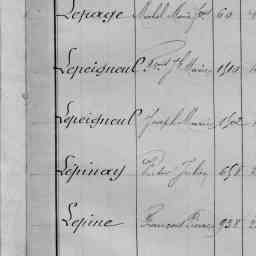 Lepage Michel Marie Jh 60
Lepeigneul Pre Jh Marie 1510
Lepeigneul Joseph Marie 1502
Lépinay Victor Julien 658
Lepine François Pierre 938